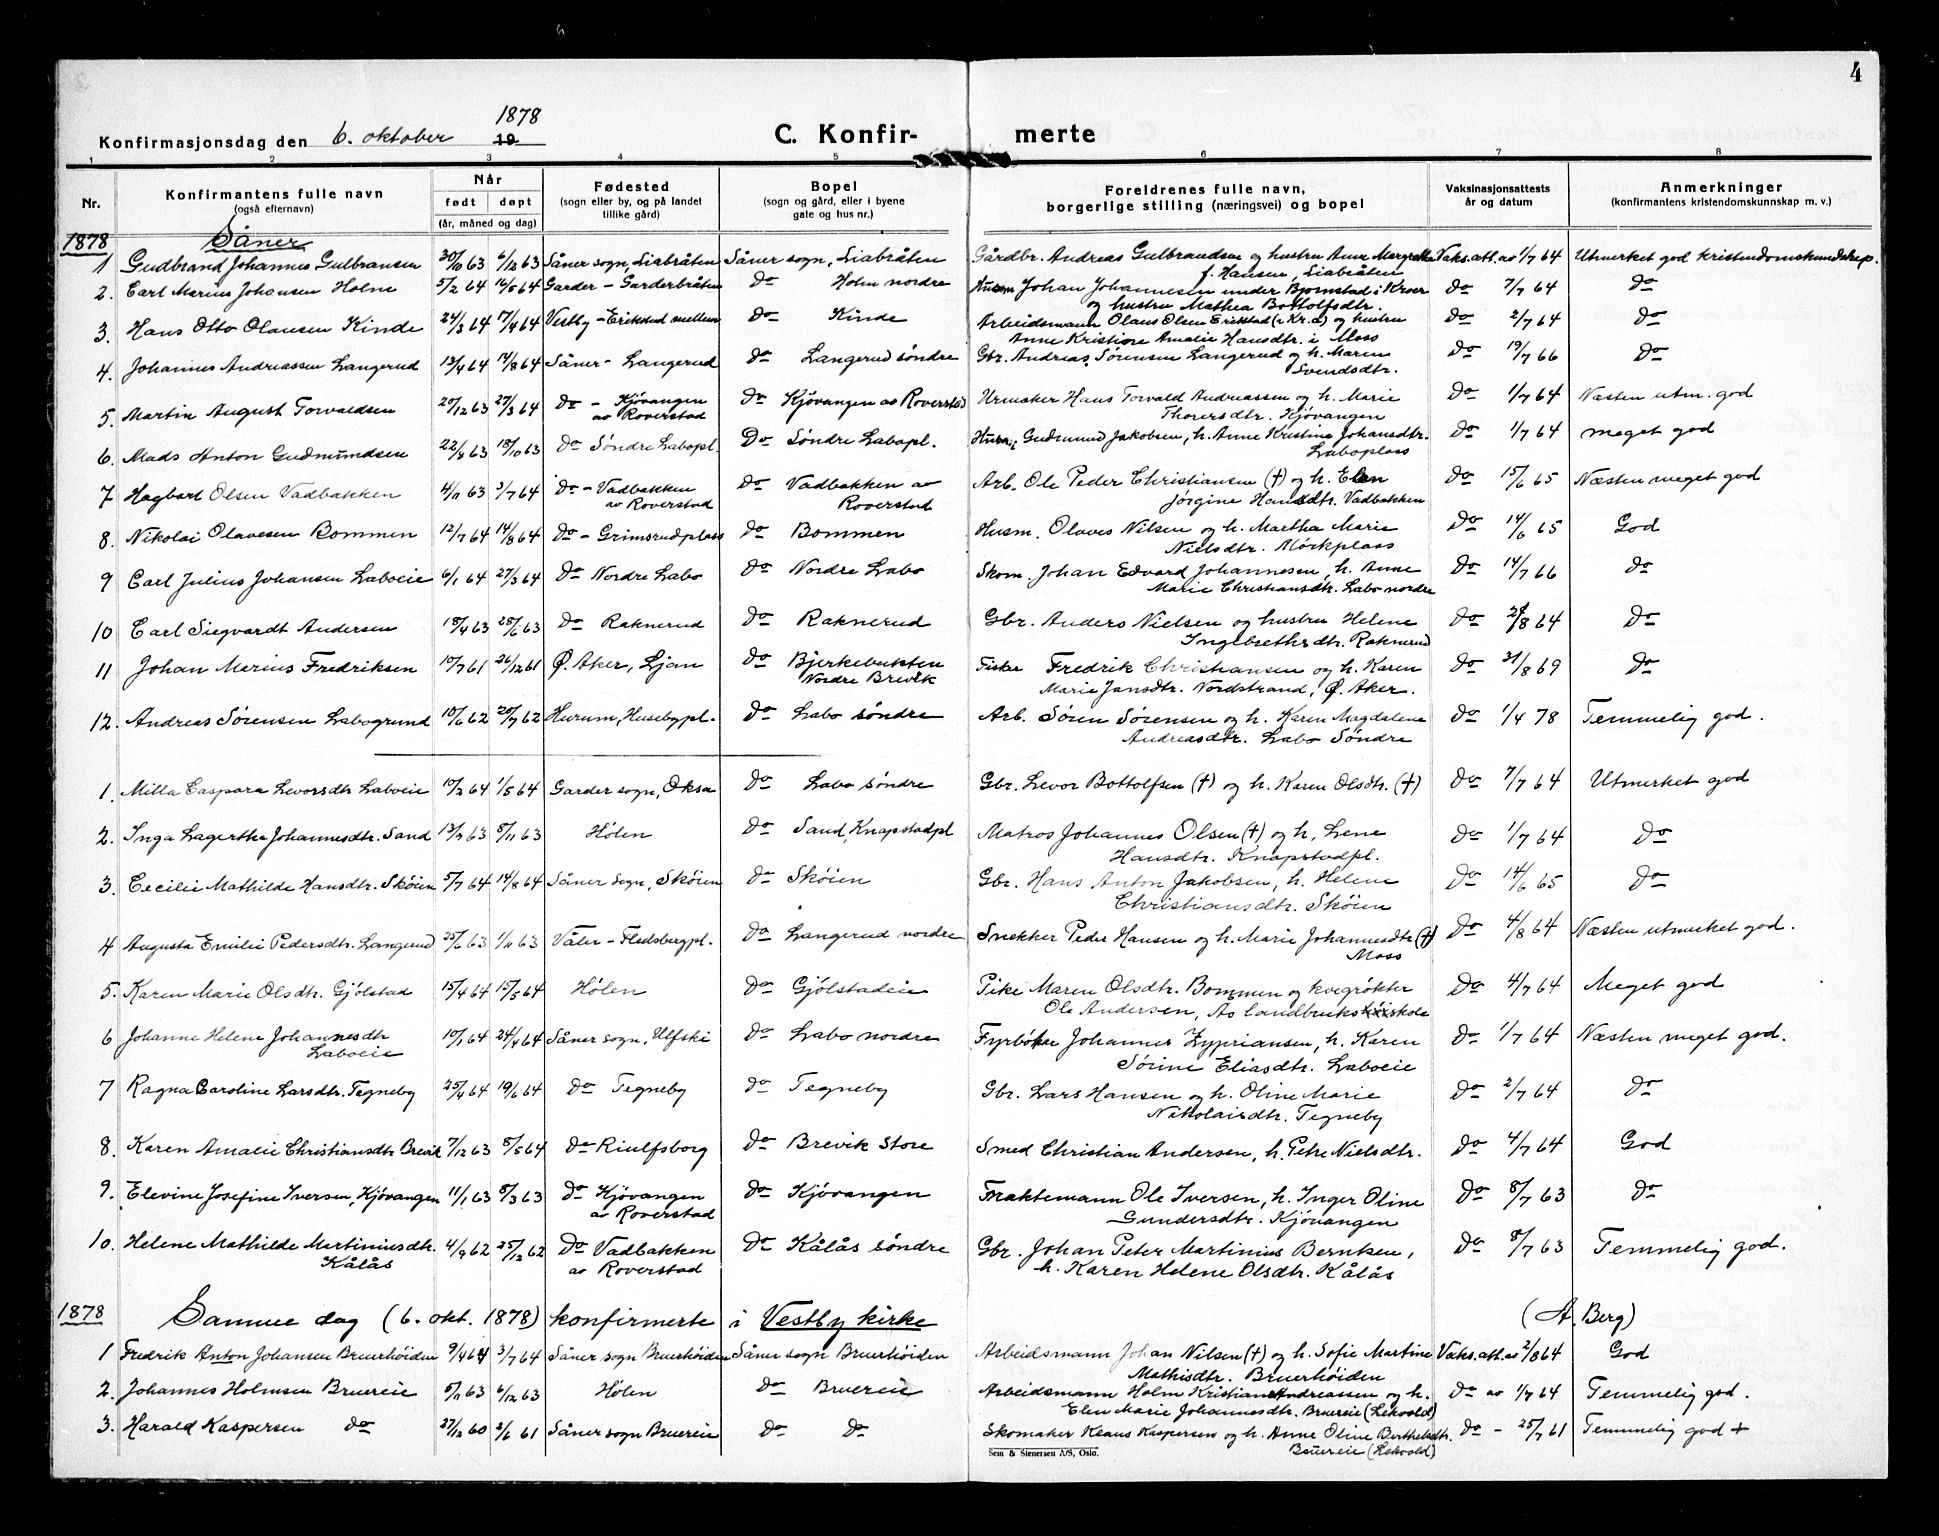 4
Konfirmasjonsdag den 6. oktober 1878 19
C. Konfir- merte
1 2 3 4 5 6 7 8
Nr. Konfirmantens fulle navn (også efternavn) Når født døpt (år, måned og dag) Fødested (sogn eller by, og på landet tillike gård) Bopel (sogn og gård, eller i byene gate og hus nr.) Foreldrenes fulle navn, borgerlige stilling (næringsvei) og bopel Vaksinasjonsattests år og datum Anmerkninger (konfirmantens kristendomskunnskap m. v.)
1878 Såner
1 Gudbrand Johannes Gulbransen 30/10 63 6/12 63 Såner sogn, Liabråten Såner sogn, Liabråten Gårdbr. Andreas Gulbrandsen og hustru Anne Margrethe Vaks.att. av 1/7 64 Utmerket god kristendomskundskap.
f. Hansen, Liabråten
2. Carl Marius Johansen Holm 5/2 64 16/5 64 Garder - Garderbråten Do Holm nordre Husm Johan Johannesen under Bjørnstad i Kroer Do 7/7 64 Do
og hustru Mathea Bottolfsdtr.
3. Hans Otto Olausen Kinde 24/3 64 17/4 64 Vestby - Erikstad mellem Do Kinde Arbeidsmann Olaus Olsen Erikstad (i Kr.a) og hustru Do 2/7 64 Do
Anne Kristine Amalie Hansdtr. i Moss
4. Johannes Andreassen Langerud 13/4 64 14/8 64 Såner - Langerud Do Langerud søndre Gbr. Andreas Sørensen Langerud og h. Maren Do 19/7 66 Do
Svendsdtr.
5. Martin August Torvaldsen 20/12 63 27/3 64 Do - Kjøvangen Do Kjøvangen av Roverstad Urmaker Hans Torvald Andreassen og h. Marie Do 1/7 64 Næsten utm. god
av Roverstad Thorersdtr. Kjøvangen
6. Mads Anton Gudmundsen 22/8 63 18/10 63 Do Søndre Labopl. Do Søndre Labopl. Husm. Gudmund Jakobsen, h. Anne Kristine Johansdtr. Do 1/7 64 meget god
Laboplass
7 Hagbart Olsen Vadbakken 4/11 63 3/7 64 Do - Vadbakken Do Vadbakken av Arb. Ole Peder Christiansen (†) og h. Elen Do 15/6 65 Næsten meget god
av Roverstad Roverstad Jørgine Hansdtr. Vadbakken
8. Nikolai Olavesen Bommen 12/7 64 14/8 64 Do - Grimsrudplass Do Bommen Husm. Olaves Nilsen og h. Martha Marie Do 14/6 65 God
Nielsdtr. Mørkplass
9 Carl Julius Johansen Laboeie 6/1 64 27/3 64 Do Nordre Labo Do Nordre Labo Skom. Johan Edvard Johannesen, h. Anne Do 14/7 66 Do
Marie Christiansdtr. Labo nordre
10 Carl Siegvardt Andersen 18/4 63 28/6 63 Do Raknerud Do Raknerud Gbr. Anders Nielsen og hustru Helene Do /8 64 Do
Ingebrethsdtr. Raknerud
11 Johan Marius Fredriksen 10/7 61 26/12 61 Ø. Aker, Ljan Do Bjerkebukten Fisker Fredrik Christiansen og h. Karen Do 31/8 69 Do
Nordre Brevik Marie Jansdtr. Nordstrand, Ø. Aker.
12. Andreas Sørensen Labogrund 10/6 62 20/7 62 Hurum, Husebypl. Do Labo søndre Arb. Søren Sørensen og h. Karen Magdalene Do 1/4 78 Temmelig god.
Andreasdtr. Labo Søndre
1. Milla Caspara Levorsdtr Laboeie 10/2 64 1/5 64 Garder sogn, Oksa Do Labo søndre Gbr. Levor Bottolfsen (†) og h. Karen Olsdtr. (†) Do 7/7 64 Utmerket god
2. Inga Lagertha Johannesdtr. Sand 13/9 63 8/11 63 Hølen Do Sand, Knapstadpl Matros Johannes Olsen (†) og h. Lene Do 1/7 64 Do
Hansdtr. Knapstadpl.
3. Cecilie Mathilde Hansdtr. Skøien 5/7 64 14/8 64 Såner sogn, Skøien Do Skøien Gbr. Hans Anton Jakobsen, h. Helene Do 14/6 65 Do
Christiansdtr. Skøien
4 Augusta Emilie Pedersdtr. Langerud 25/6 63 1/11 63 Våler - Fledsbergpl. Do Langerud nordre Snekker Peder Hansen og h. Marie Johannesdtr (†) Do 4/8 64 Næsten utmerket god.
Moss
5. Karen Marie Olsdtr. Gjølstad 15/4 64 15/5 64 Hølen Do Gjølstadeie Pike Maren Olsdtr. Bommen og kvegrøkter Do 4/7 64 Meget god
Ole Andersen, Ås landbruksskole
6 Johanne Helene Johannesdtr 10/1 64 24/4 64 Såner sogn, Ulfski Do Labo nordre Fyrbøter Johannes Zypriansen, h. Karen Do 1/7 64 Næsten meget god.
Laboeie Sørine Eliasdtr. Laboeie
7 Ragna Caroline Larsdtr. Tegneby 25/4 64 19/6 64 Do Tegneby Do Tegneby Gbr. Lars Hansen og h. Oline Marie Do 2/7 64 Do
Nikolaisdtr. Tegneby
8. Karen Amalie Christiansdtr Brevik 7/12 63 8/5 64 Do Riulfsborg Do Brevik Store Smed Christian Andersen, h. Petre Nielsdtr. Do 4/7 64 God
9. Elevine Josefine Iversen, Kjøvangen 11/1 63 8/3 63 Do Kjøvangen Do Kjøvangen Fraktemann Ole Iversen, h. Inger Oline Do 8/7 63 Do
av Roverstad Gundersdtr. Kjøvangen
10. Helene Mathilde Martiniusdtr. 4/9 62 25/12 62 Do Vadbakken Do Kålås søndre Gbr. Johan Peter Martinius Berntsen, Do 8/7 63 Temmelig god.
Kålås av Roverstad h. Karen Helene Olsdtr. Kålås
1878 Samme dag (6. okt. 1878) konfirmerte i Vestby kirke (A. Berg)
1 Fredrik Anton Johansen Bruerhøiden 9/4 64 3/7 64 Såner sogn Bruerhøiden Såner sogn Bruerhøiden Arbeidsmann Johan Nilsen (†) og h. Sofie Martine Vaks.att. av 2/8 64 God
Mathisdtr. Bruerhøiden
2. Johannes Holmsen Bruereie 5/11 63 6/12 63 Hølen Do Bruereie Arbeidsmann Holm Kristian Andreassen og h. Do av 1/7 64 Temmelig god.
Elen Marie Johannesdtr. Bruereie (Lekvold)
3. Harald Kaspersen Do 27/12 60 2/6 61 Såner sogn Bruereie Do Do Skomaker Klaus Kaspersen og h. Anne Oline Berthelsdtr. Do - 25/7 61 Temmelig god +
Bruereie (Lekvold)
Sem & Stenersen A/S, Oslo.